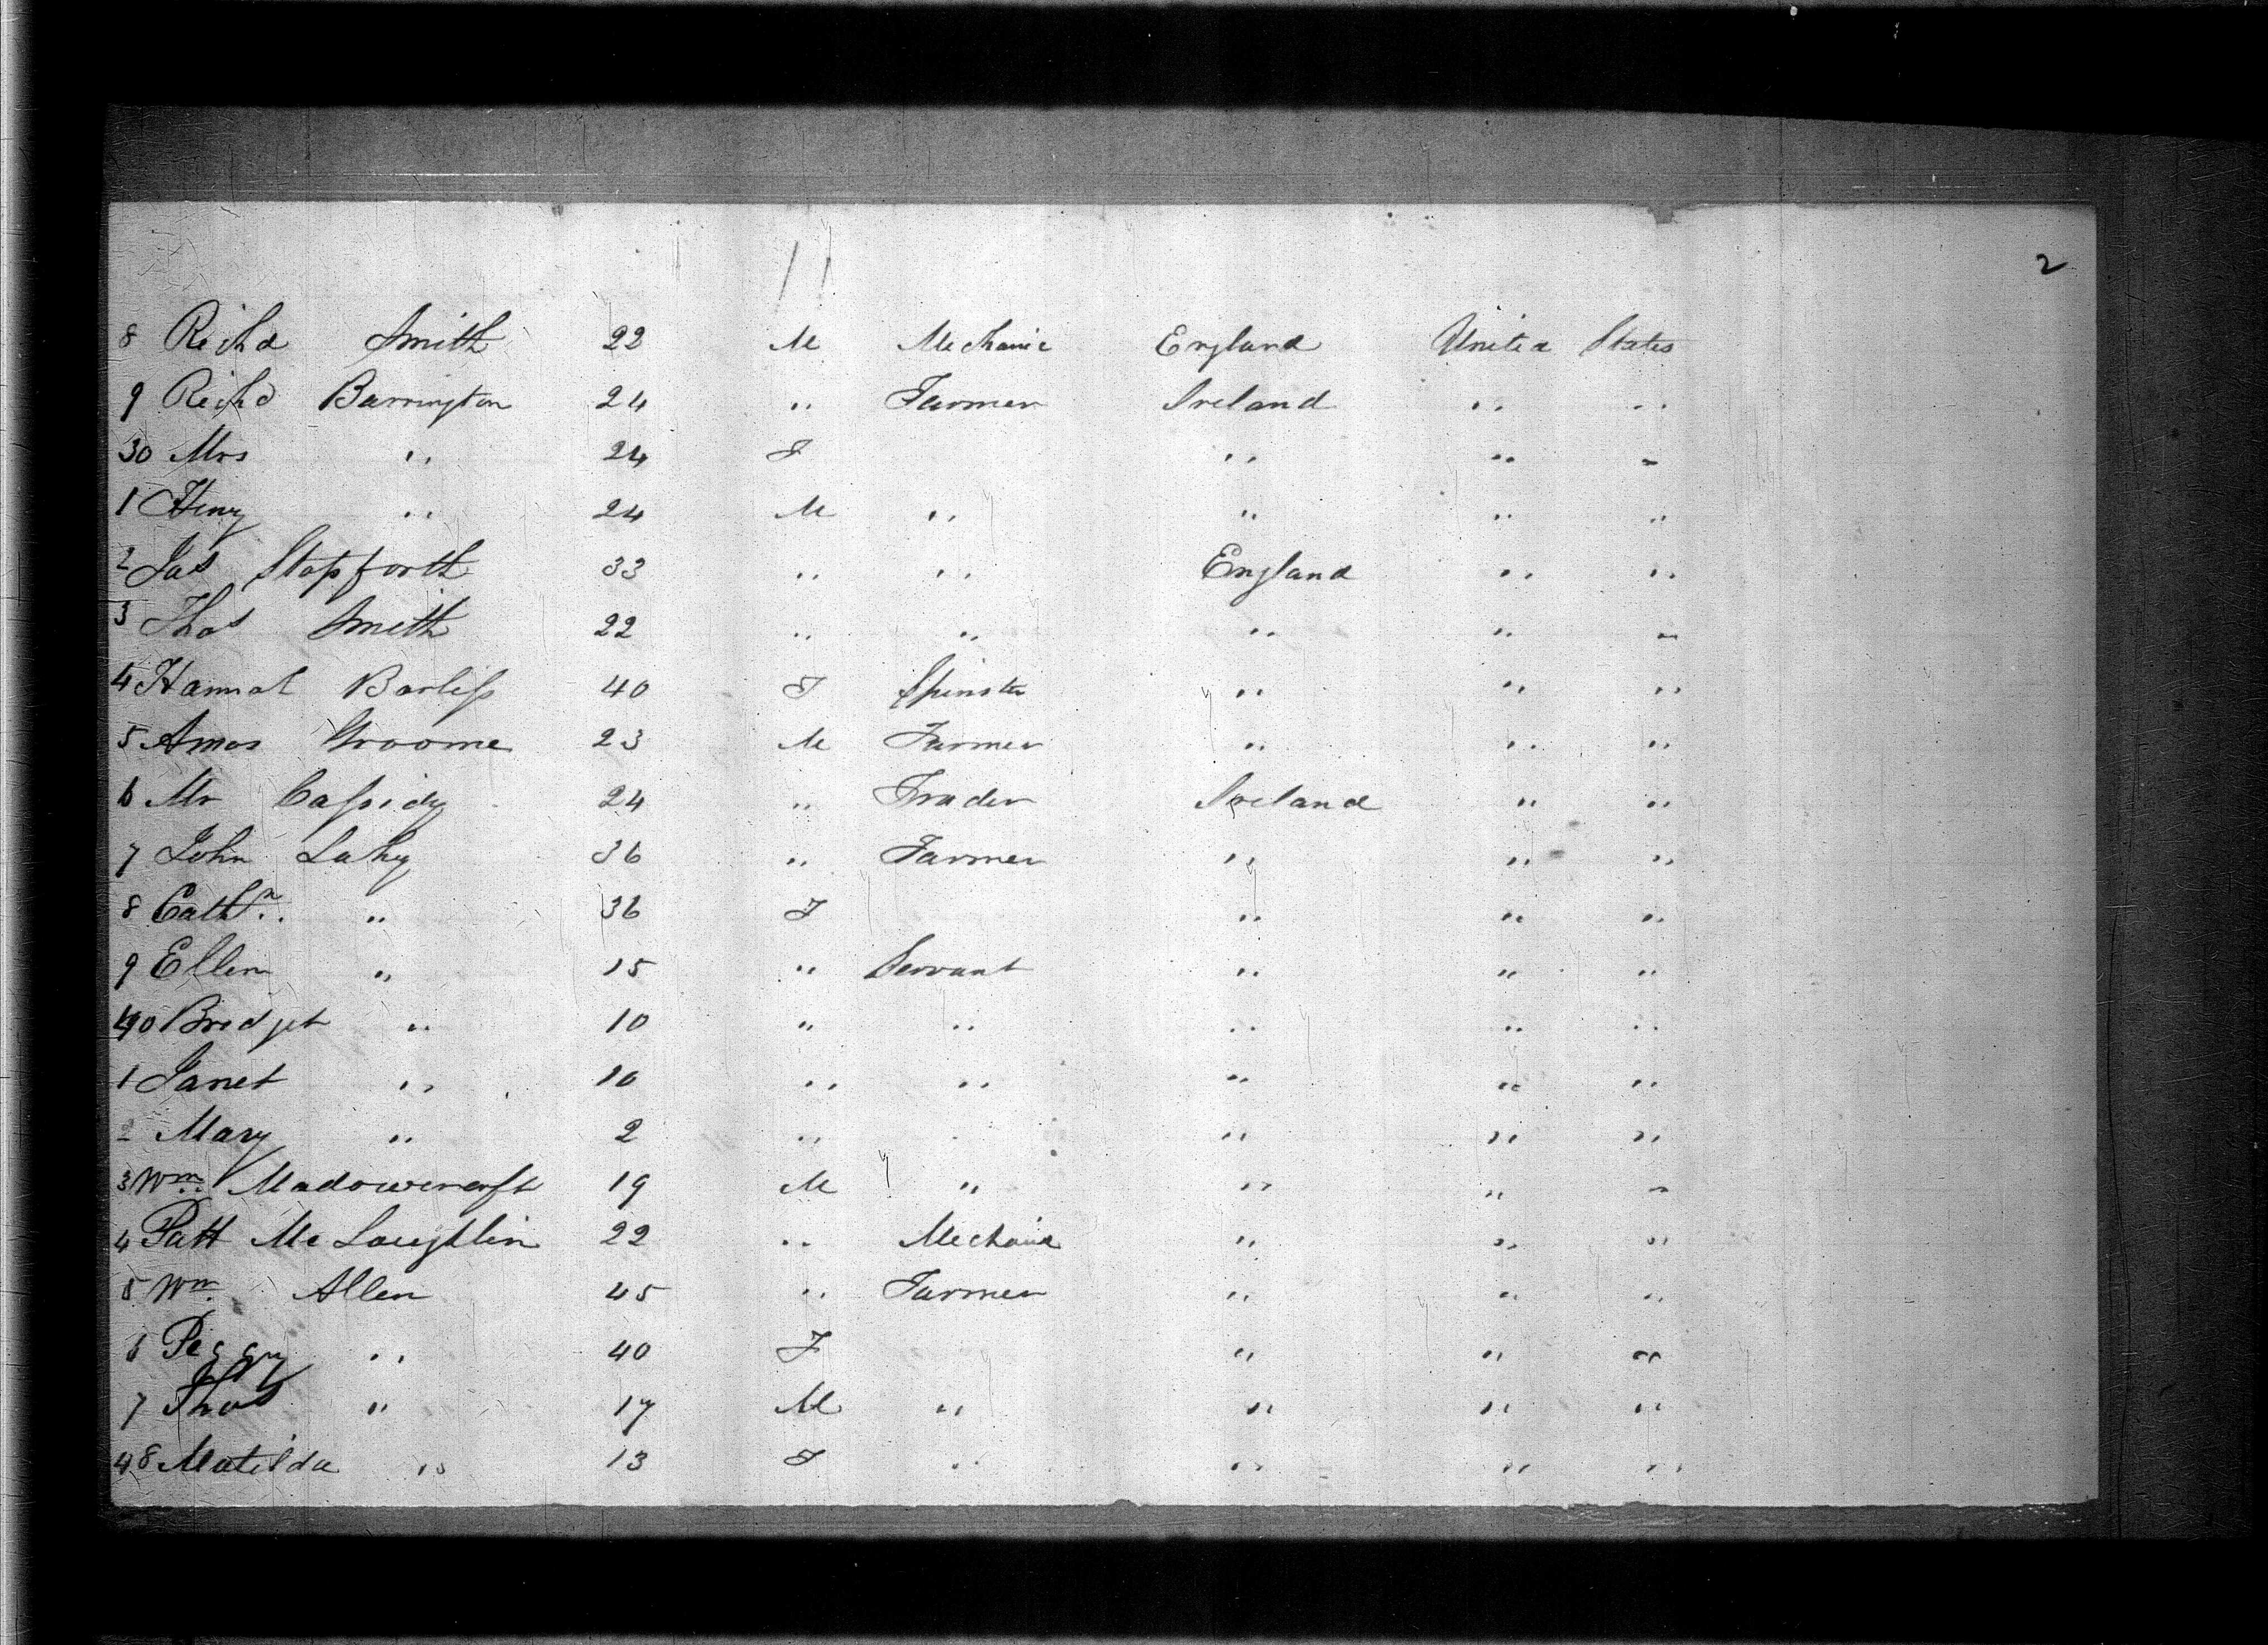 2
8 Richd Smith 22 M Mechanic England United States
9 Richd Barrington 24 " Farmer Ireland " "
30 Mrs " 24 F " " "
1 Henry " 24 M " " " "
2 Jas Stopforth 33 " " England " "
3 Thos Smith 22 " " " " "
4 Hannah 40 F Spinster " " "
5 Amos Groome 23 M Farmer " " "
6 Mr Cassidy 24 " Trader Ireland " "
7 John Lahy 36 " Farmer " " "
8 Cathn " 36 F " " "
9 Ellen " 15 " Servant " " "
40 Bridget " 10 " " " " "
1 Janet " 10 " " " " "
2 Mary " 2 " " " "
3 Wm Madowcroft 19 M " " " "
4 Patt McLaughlin 22 " Mechanic " " "
5 Wm Allen 45 " Farmer " " "
6 Peggy " 40 F " " "
7 Thos " 17 M " " " "
48 Matilda " 13 F " " " "